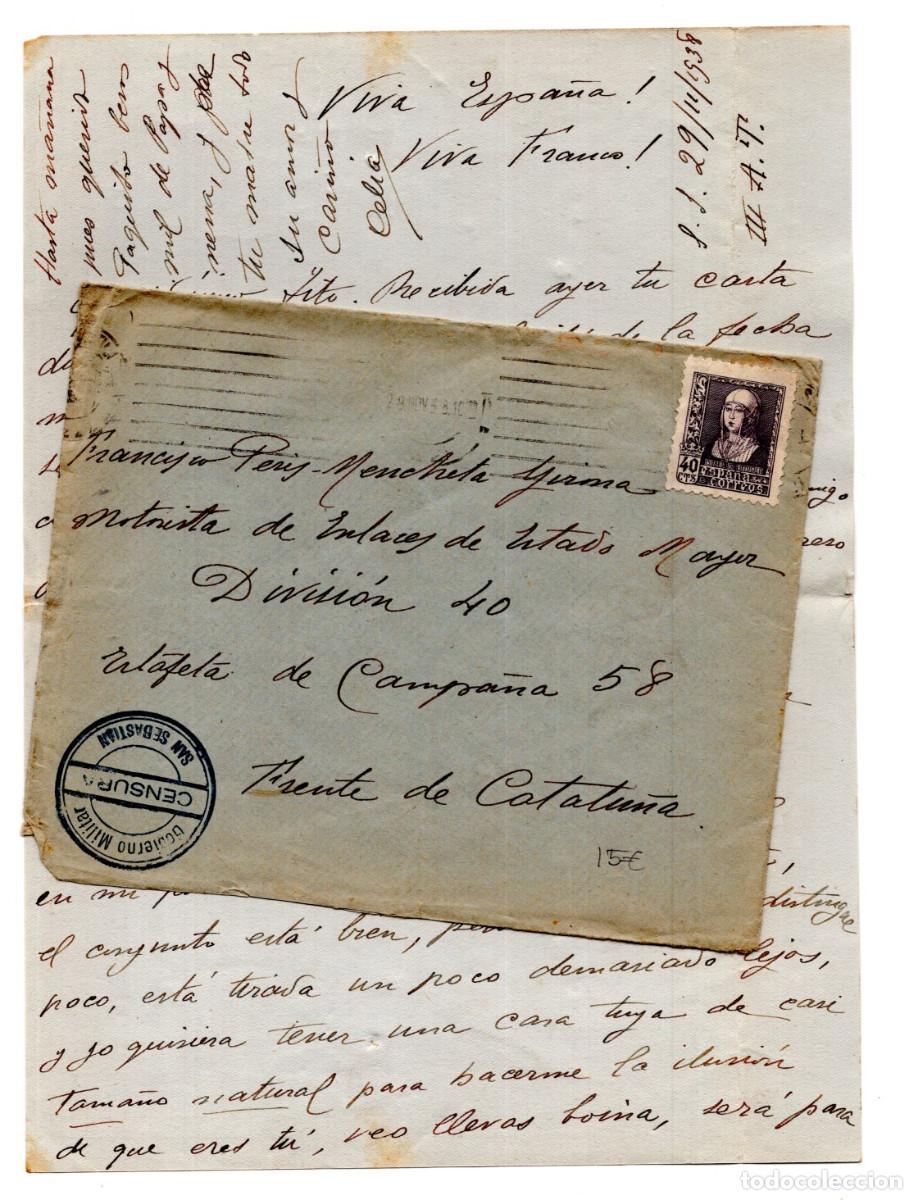 Viva España!
Viva Franco!
S.S. 29/11/1938
III A.T.
Hasta mañana
pues querido
Paquito besos
mil de Papás
nena, y
tu madre todo
su amor y
Cariño
Celia
Tito. Recibida ayer tu carta
de la fecha
28 NOV 38
40 CTS
ESPAÑA
CORREOS
Francisco Peris-Mencheta Girona
Motorista de Enlaces de Estado Mayor
División 40
Estafeta de Campaña 58
Frente de Cataluña.
Gobierno Militar
CENSURA
SAN SEBASTIAN
15€
en mi
distingue
el conjunto está bien,
poco, está tirada un poco demasiado lejos,
y yo quisiera tener una cara tuya de casi
tamaño natural para hacerme la ilusión
de que eres tú, veo llevas boina, será para
todocoleccion